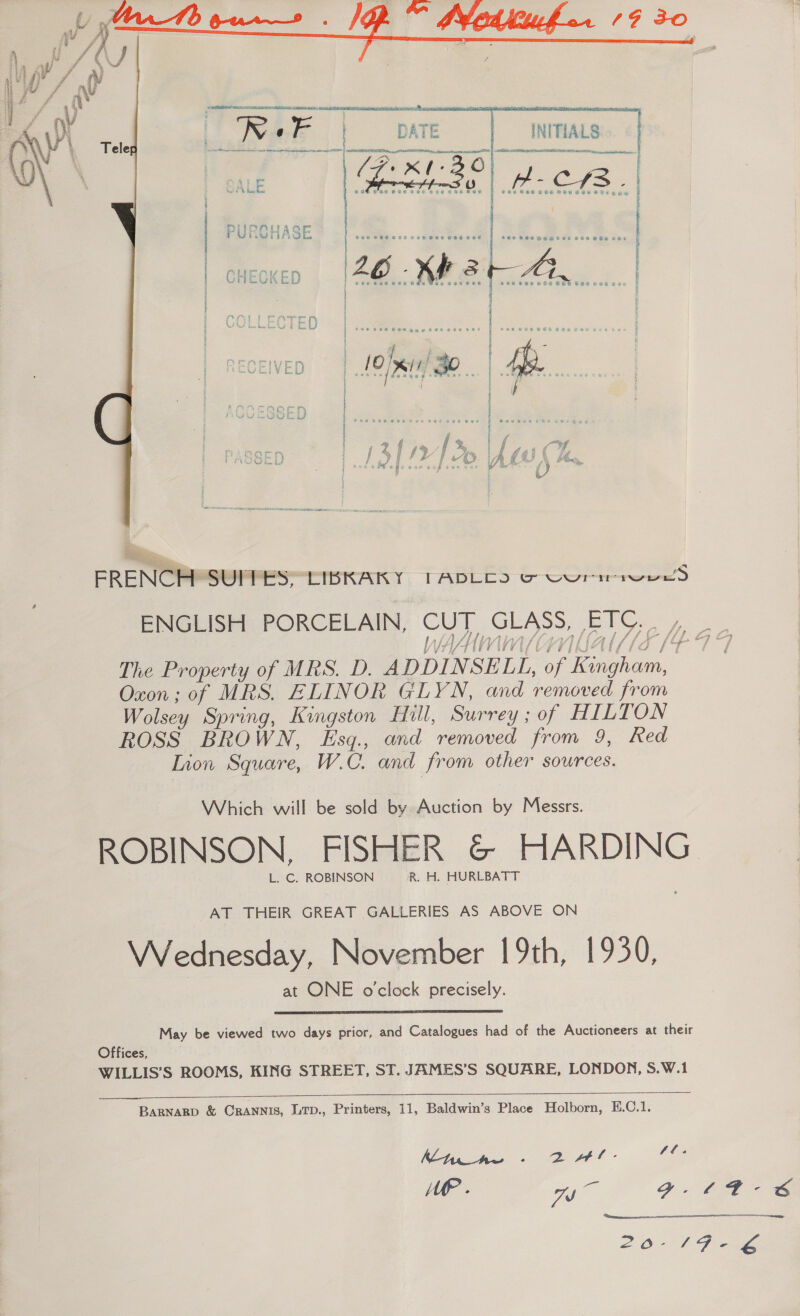 19th November 1930
Telep
R.F DATE INITIALS
SALE 19.XI.30 H-CB.
PURCHASE
CHECKED 26
COLLECTED
RECEIVED 10/XII/30
ACCESSED
PASSED 13/12/30
FRENCH SUITES, LIBRARY TABLES &
ENGLISH PORCELAIN, CUT GLASS, ETC.
The Property of MRS. D. ADDINSELL, of Kingham,
Oxon; of MRS. ELINOR GLYN, and removed from
Wolsey Spring, Kingston Hill, Surrey; of HILTON
ROSS BROWN, Esq., and removed from 9, Red
Lion Square, W.C. and from other sources.
Which will be sold by Auction by Messrs.
ROBINSON, FISHER & HARDING
L. C. ROBINSON R. H. HURLBATT
AT THEIR GREAT GALLERIES AS ABOVE ON
Wednesday, November 19th, 1930,
at ONE o'clock precisely.
May be viewed two days prior, and Catalogues had of the Auctioneers at their
Offices,
WILLIS'S ROOMS, KING STREET, ST. JAMES'S SQUARE, LONDON, S.W.1
BARNARD & CRANNIS, LTD., Printers, 11, Baldwin's Place Holborn, E.C.1.
9-19-6
20-19-6